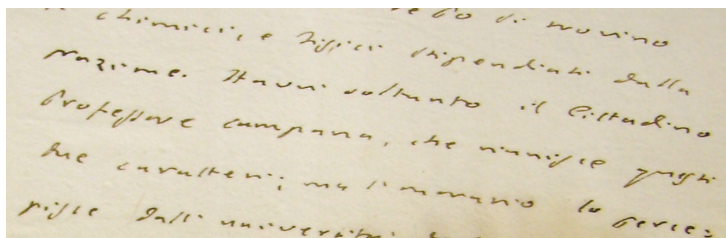 di
chimici, e fisici stipendiati dalla
Nazione. Havvi soltanto il Cittadino
Professore Campana, che riunisce questi
due caratteri; ma l'onorario lo perce-
pisce dall'università